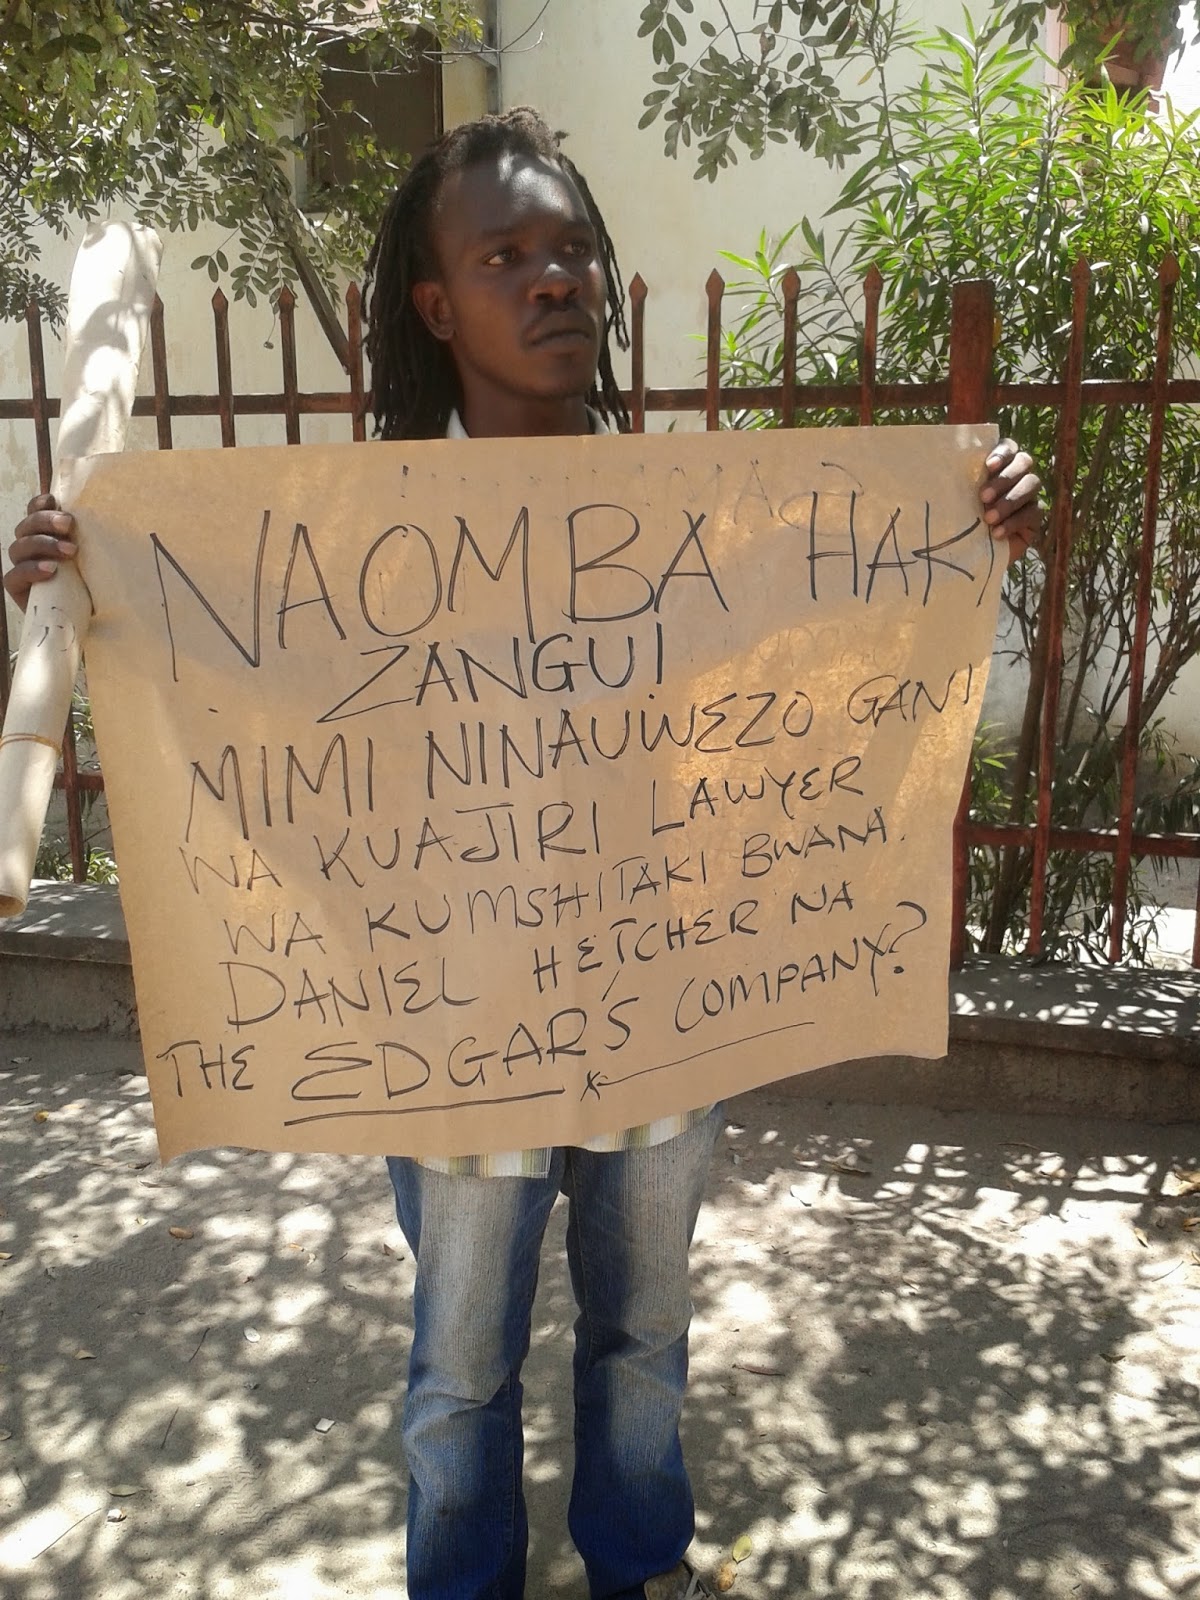 NAOMBA HAKI
ZANGU!
MIMI NINAUWEZO GANI
WA KUAJIRI LAWYER
WA KUMSHITAKI BWANA.
DANIEL HETCHER NA
THE EDGAR'S COMPANY?